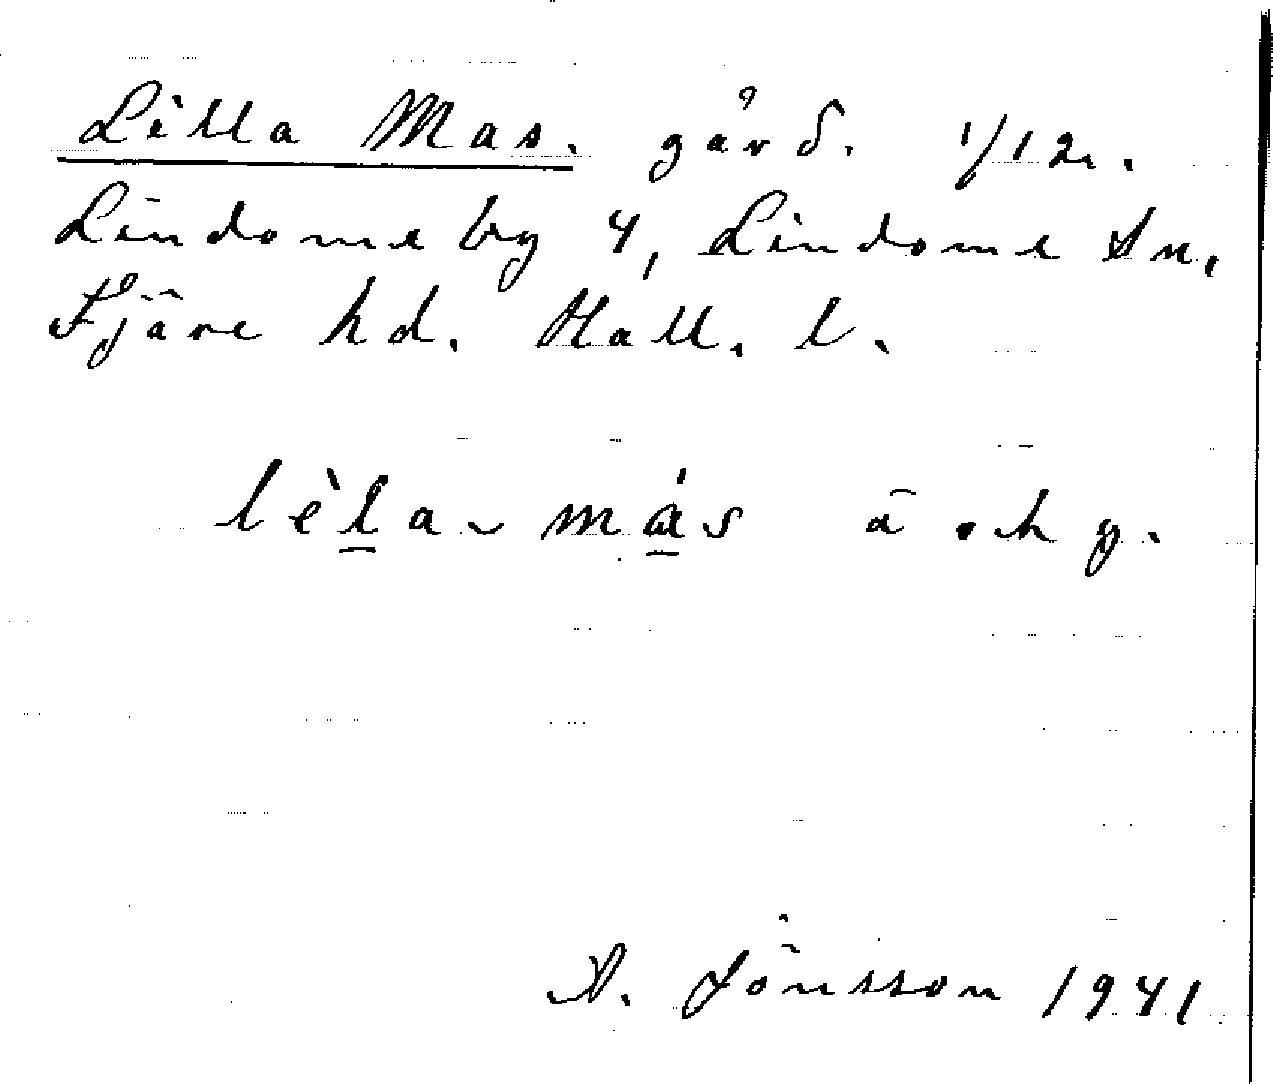 Lilla Mas. gård. 1/12.
Lindome by 4, Lindome sn.
Fjäre hd. Hall. l.
lèl̲a-má̲s ä. h y.
A. Jönsson 1941